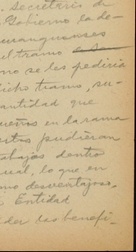 Secretrìs de
Gobierno la de-
uranguenses
el tramo
mo se les pediria
icho tramo, su-
antidad que
ueños en la rama
estos pudieran
abajos dentro
ual, lo que en
mo desventajoso,
Entidad
der los benefi-